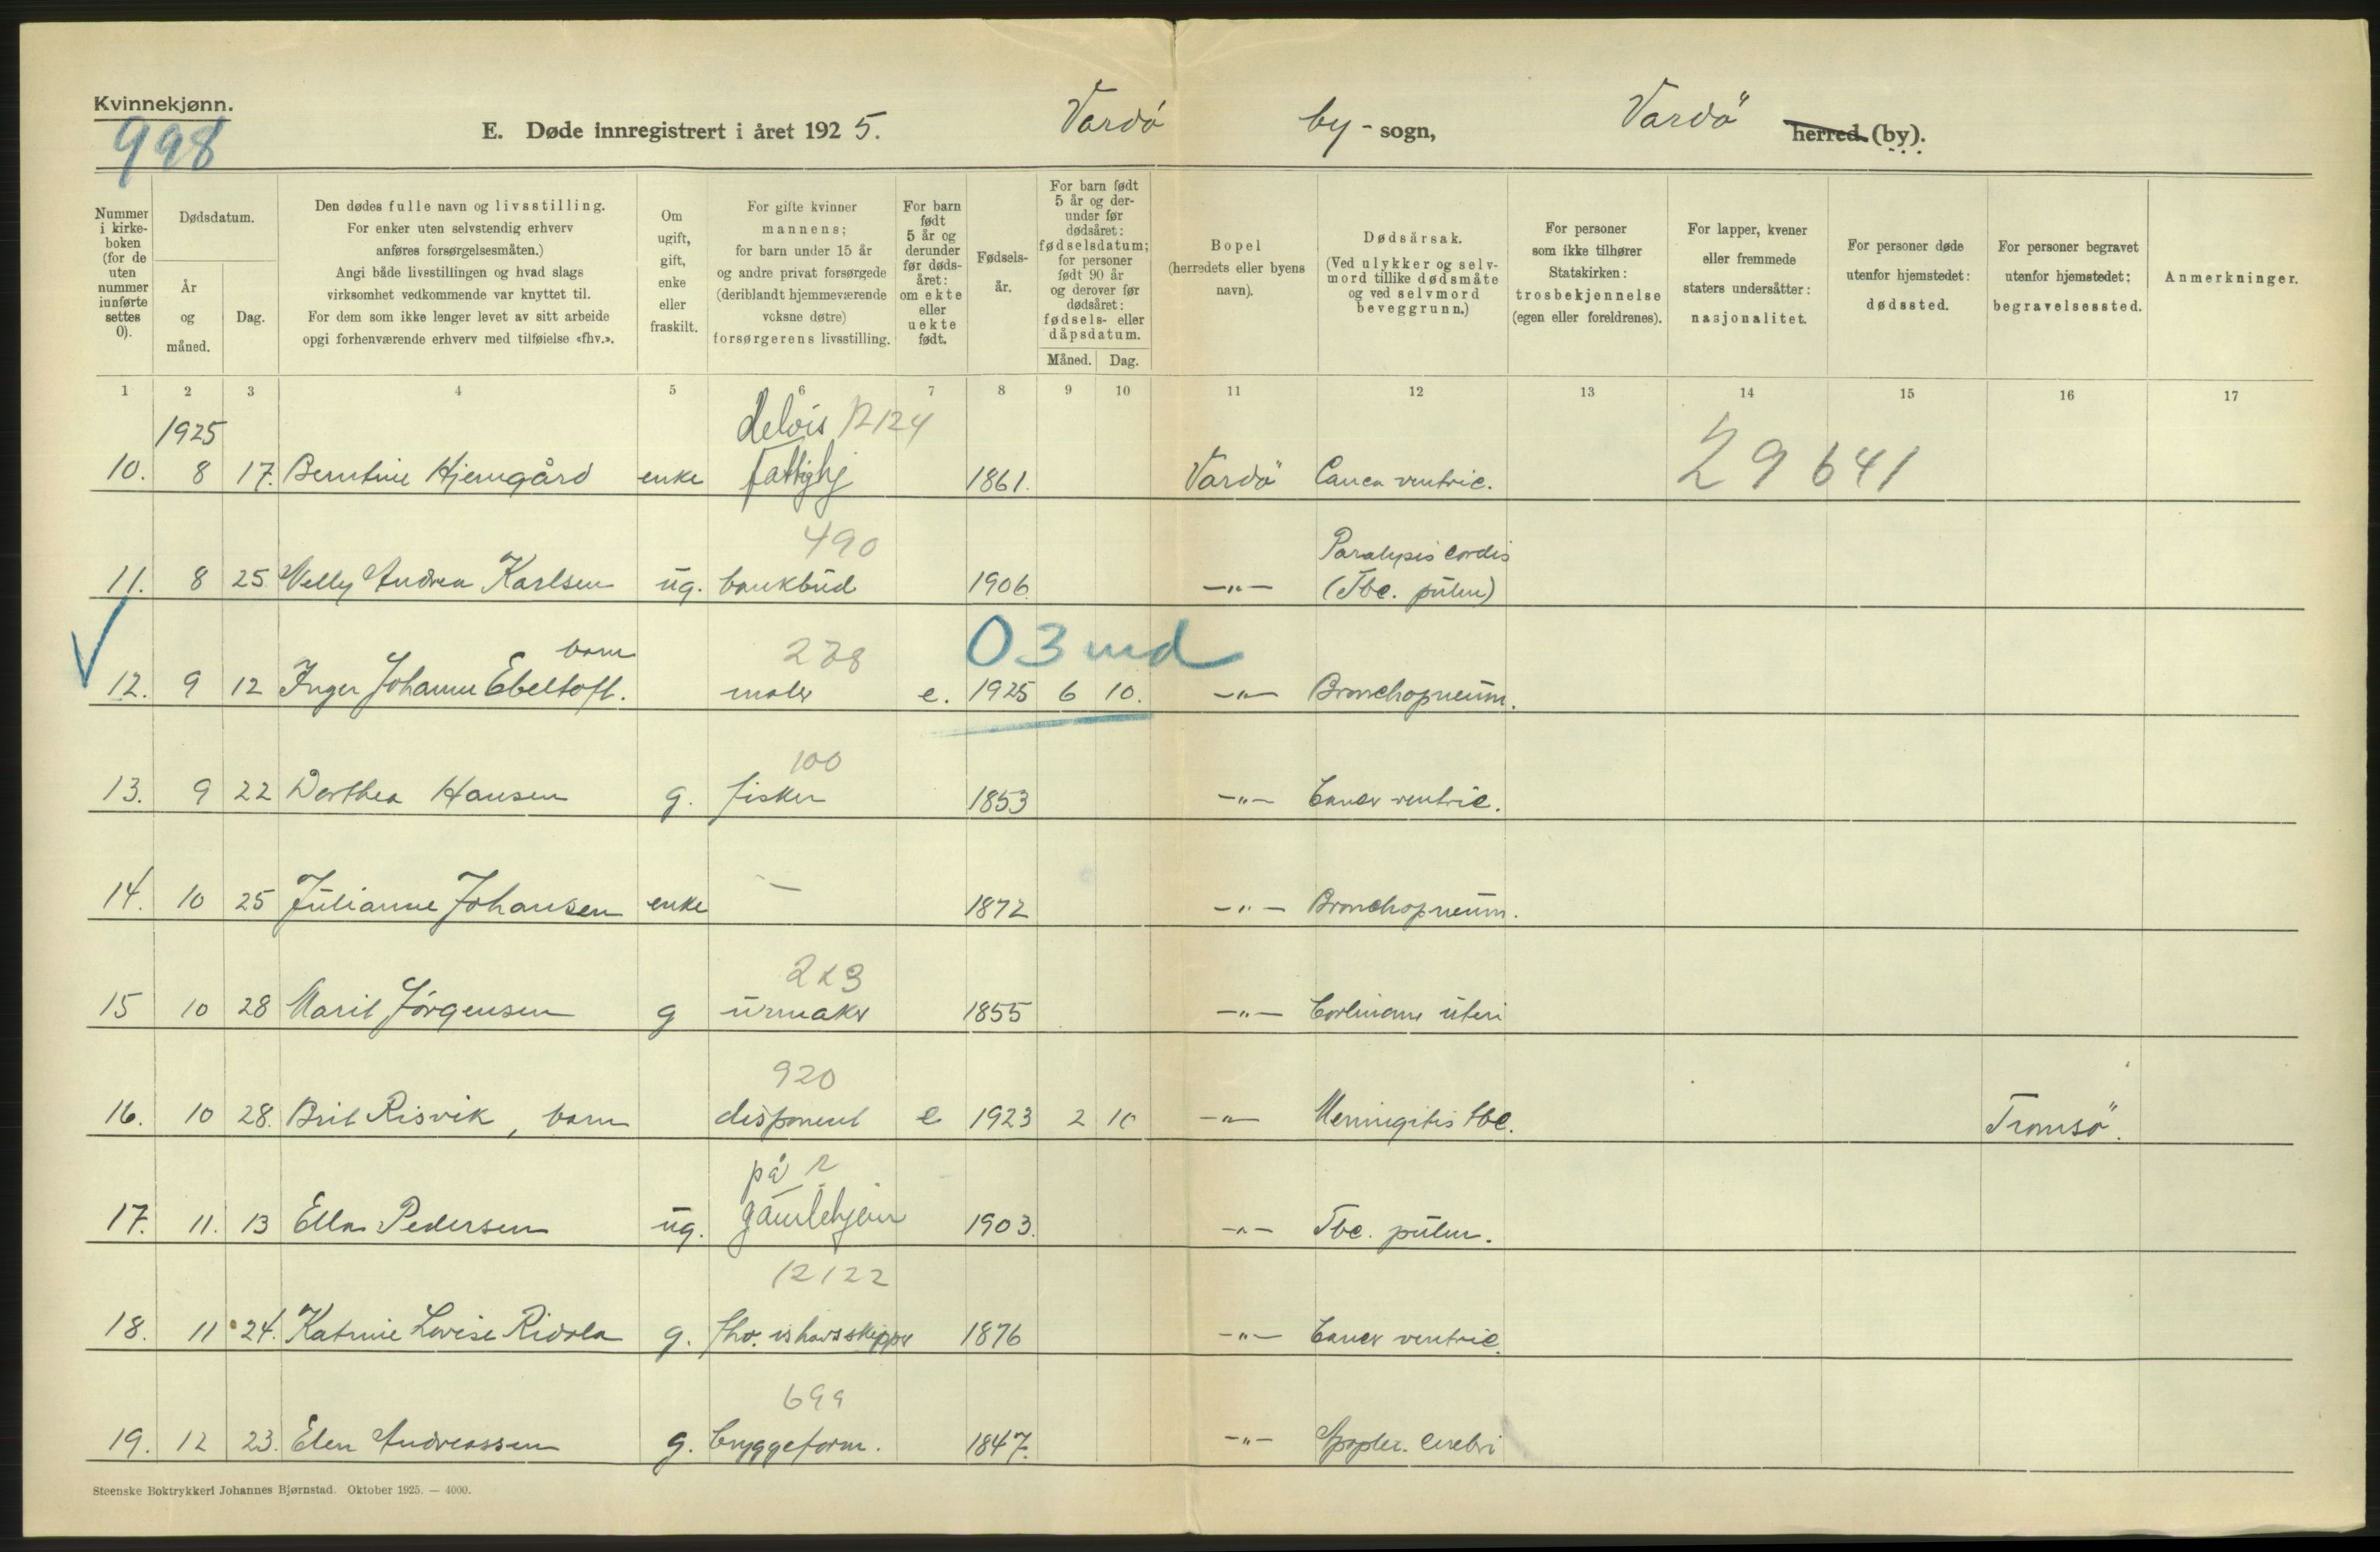 Kvinnekjønn.
998
E. Døde innregistrert i året 1925. Vardö by - sogn, Vardö herred (by).
Nummer i kirke-boken (for de uten nummer innførte settes 0).
Dødsdatum.
År og måned.
Dag.
Den dødes fulle navn og livsstilling.
For enker uten selvstendig erhverv
anføres forsørgelsesmåten.)
Angi både livsstillingen og hvad slags
virksomhet vedkommende var knyttet til.
For dem som ikke lenger levet av sitt arbeide
opgi forhenværende erhverv med tilføielse «fhv.».
Om ugift, gift, enke eller fraskilt.
For gifte kvinner
mannens;
for barn under 15 år
og andre privat forsørgede
(deriblandt hjemmeværende
voksne døtre)
forsørgerens livsstilling.
For barn født 5 år og derunder før døds-året: om ekte eller uekte født.
Fødsels-år.
For barn født 5 år og der-under før dødsåret: fødselsdatum; for personer født 90 år og derover før dødsåret: fødsels- eller dåpsdatum.
Måned. Dag.
Bopel
(herredets eller byens
navn).
Dødsårsak.
(Ved ulykker og selv-
mord tillike dødsmåte
og ved selvmord
beveggrunn.)
For personer
som ikke tilhører
Statskirken:
trosbekjennelse
(egen eller foreldrenes).
For lapper, kvener
eller fremmede
staters undersåtter:
nasjonalitet.
For personer døde
utenfor hjemstedet:
dødssted.
For personer begravet
utenfor hjemstedet:
begravelsessted.
Anmerkninger.
1 2 3 4 5 6 7 8 9 10 11 12 13 14 15 16 17
1925 delvis 12124
10. 8 17. Berntine Hjemgård enke fattighj 1861. Vardö Cancer ventric. 29641
490 Paralysis cordis
11. 8 25 Velly Andrea Karlsen ug. bankbud 1906. -"- (Tbc. pulm)
barn 278 03 md
12. 9 12 Inger Johanne Ebeltoft. maler e. 1925 6 10. -"- Bronchopneum.
100
13. 9 22 Dorthea Hansen g. fisker 1853 -"- Cancer ventric.
14. 10 25 Julianne Johansen enke — 1872 -"- Bronchopneum.
223
15 10 28 Marit Jörgensen g urmaker 1855 -"- uteri
920
16. 10 28. Brit Risvik, barn disponent e 1923 2 10 -"- Meningitis tbc. Tromsö.
på
17. 11. 13 Ella Pedersen ug. gamlehjem 1903. -"- Tbc. pulm.
12122
18. 11 24. Katrine Lovise Ridola g. fhv. ishavsskipper 1876 -"- Cancer ventric.
699
19. 12 23. Elen Andreassen g. bryggeform. 1847. -"- Apoplex. cerebri
Steenske Boktrykkeri Johannes Bjørnstad. Oktober 1925. — 4000.